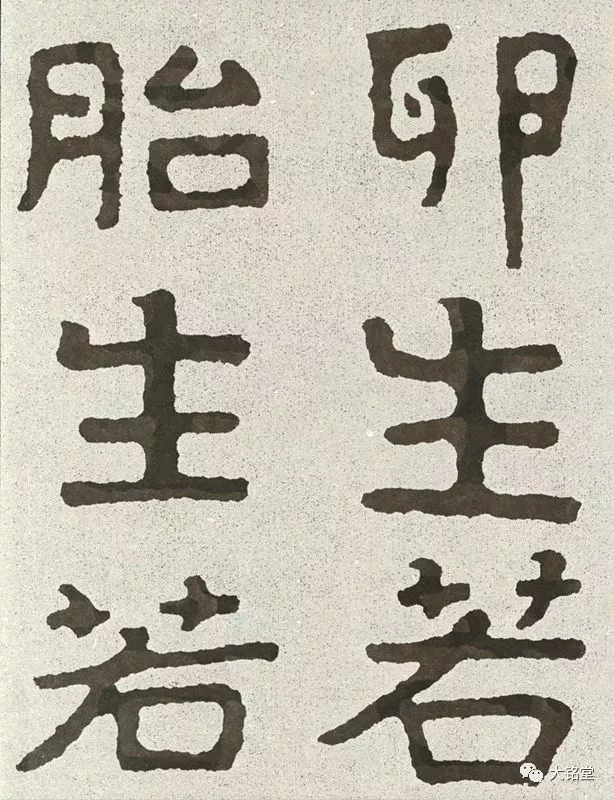 卵生若
胎生若
大铭堂